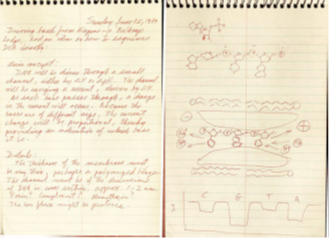 Sunday June 25, 1989
Driving back from Eugene → Package
Lodge, had an idea on how to sequence
DNA directly:
Main concept:
DNA will be driven through a small
channel, either by ΔV or ΔpH. The channel
will be carrying a current, driven by ΔV.
As each base passes through, a change
in the current will occur. Because the
bases are of different sizes, the current
change will be proportional, thereby
providing an indication of which base
it is.
Details:
The thickness of the membrane must
be very thin, perhaps a polymerized
The channel must be of the dimensions
of DNA in cross section, approx. 1-2 nm.
The ion flow might be
I
C G T A